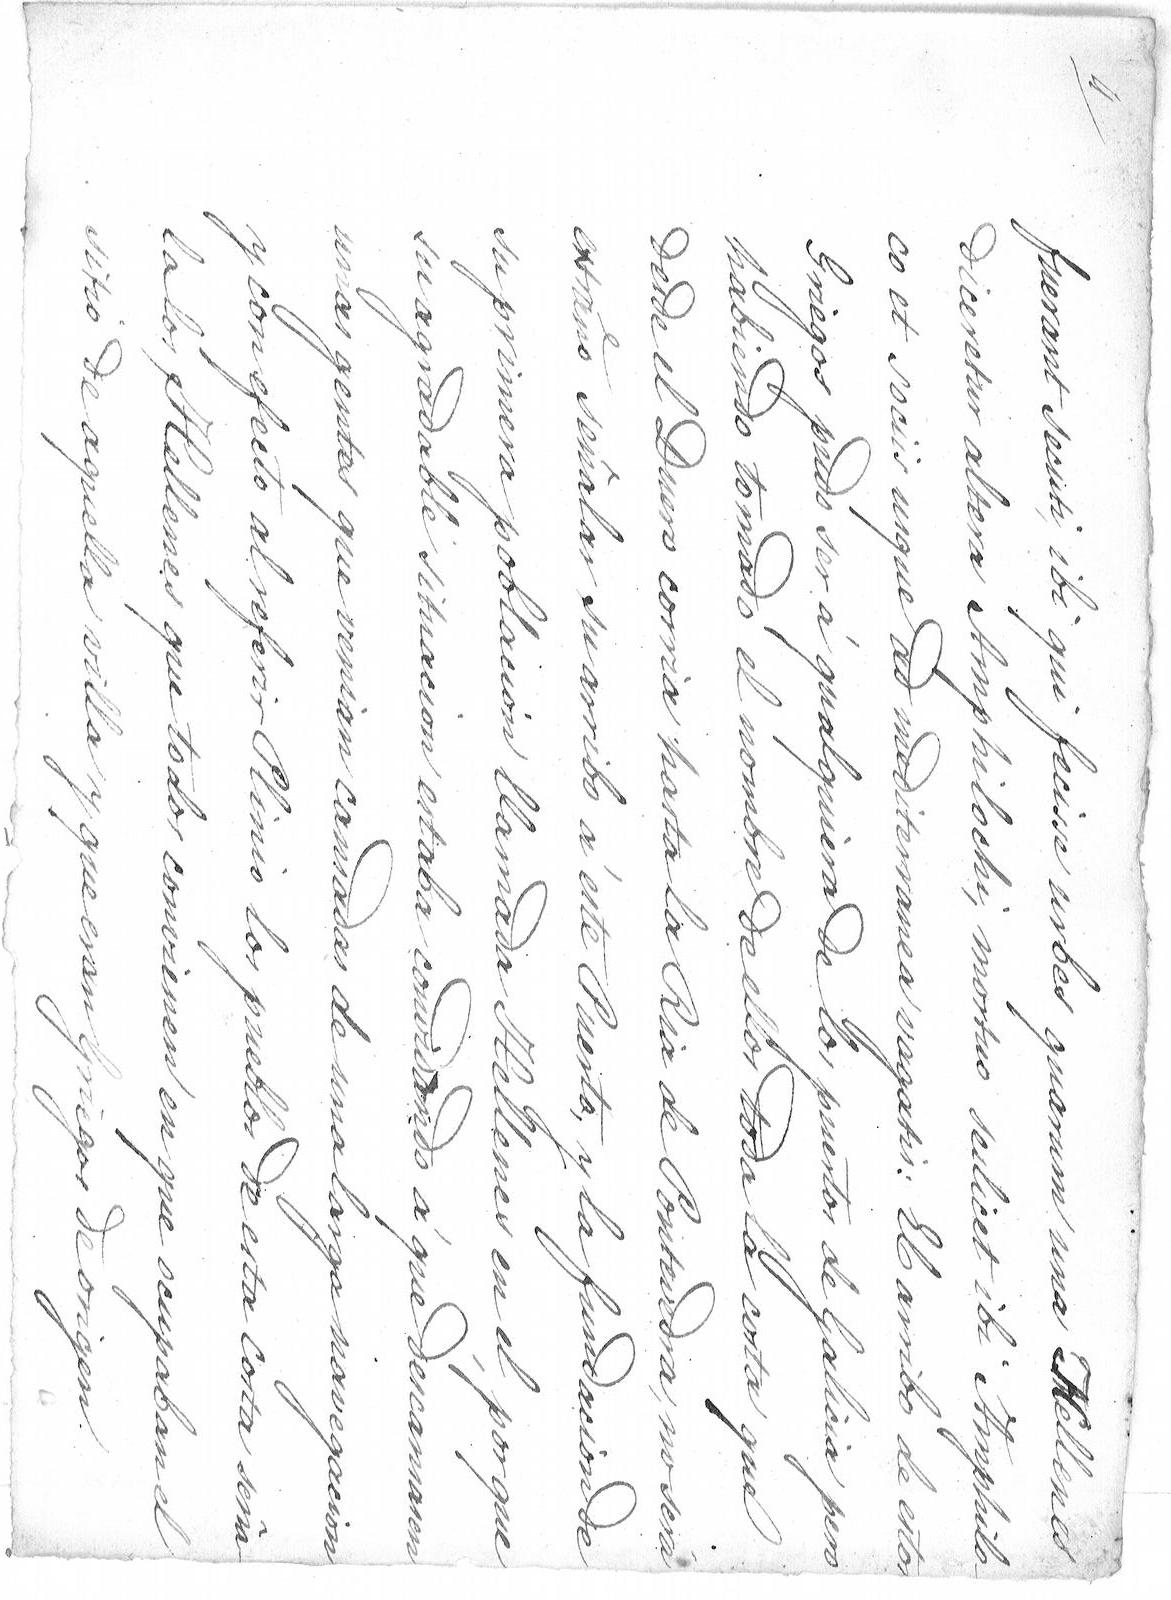 4
fuerant secuti, ibi qui fecisse urbes quarum una Hellenes
diceretur altera Amphilochi, mortuo scilicet ibi Amphilo-
co et sociis usque ad mediterranea vagatis. El arribo de estos
Griegos pudo ser á qualquiera de los puertos de Galicia pero
habiendo tomado el nombre de ellos toda la costa que
desde el Duero corria hasta la Ria de Pontevedra, no será
estraño señalar su arribo á este Puerto, y la fundacion de
su primera poblacion llamada Hellenes en el, porque
su agradable situacion estaba convidando á que descansasen
unas gentes que venian cansadas de una larga navegacion
y con efecto al referir Plinio los pueblos de esta costa seña-
la los Hellenes que todos convienen en que ocupaban el
sitio de aquella villa, y que eran Griegos de origen.